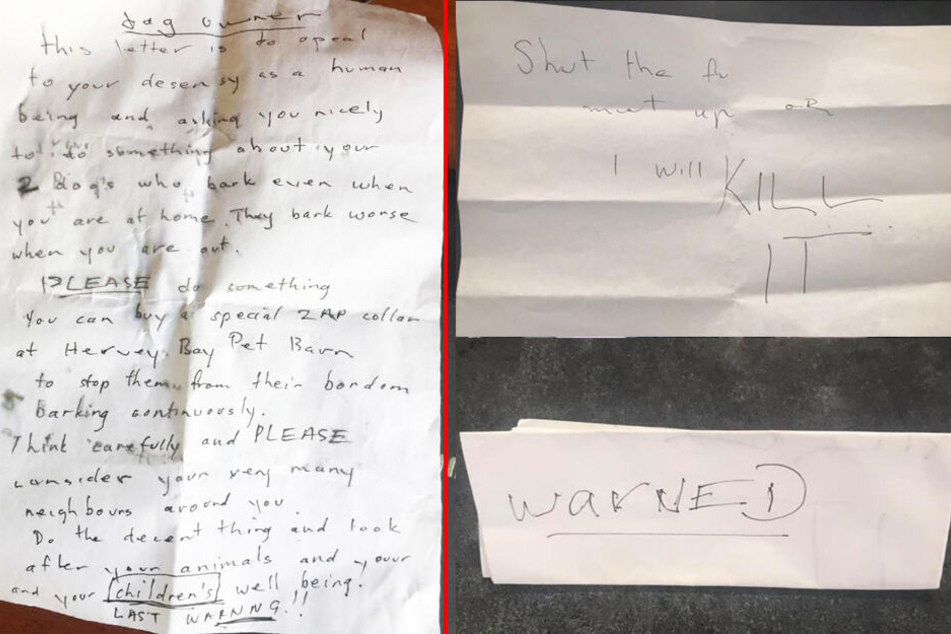 dog owner
this letter is to opeal
to your desensy as a human
being and asking you nicely
to do something about your
2 Dog's who bark even when
you are at home. They bark worse
when you are out.
PLEASE do something
You can buy a special ZAP collar
at Hervey Bay Pet Barn
to stop them from their bordom
barking continuously.
Think carefully and PLEASE
consider your very many
neighbours around you.
Do the decent thing and look
after your animals and your
and your children's well being.
LAST WARNNG.!!
Shut the fu
mutt up OR
I will KILL
IT
WARNED